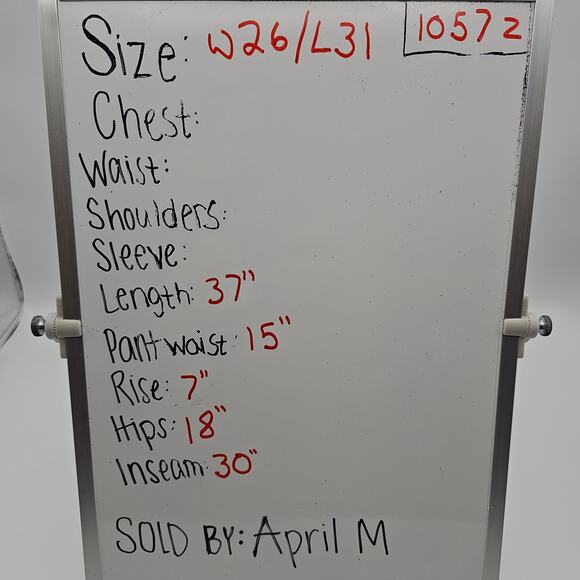 Size: W26/L31 10572
Chest:
Waist:
Shoulders:
Sleeve:
Length: 37"
Pant waist: 15"
Rise: 7"
Hips: 18"
Inseam: 30"
SOLD BY: April M